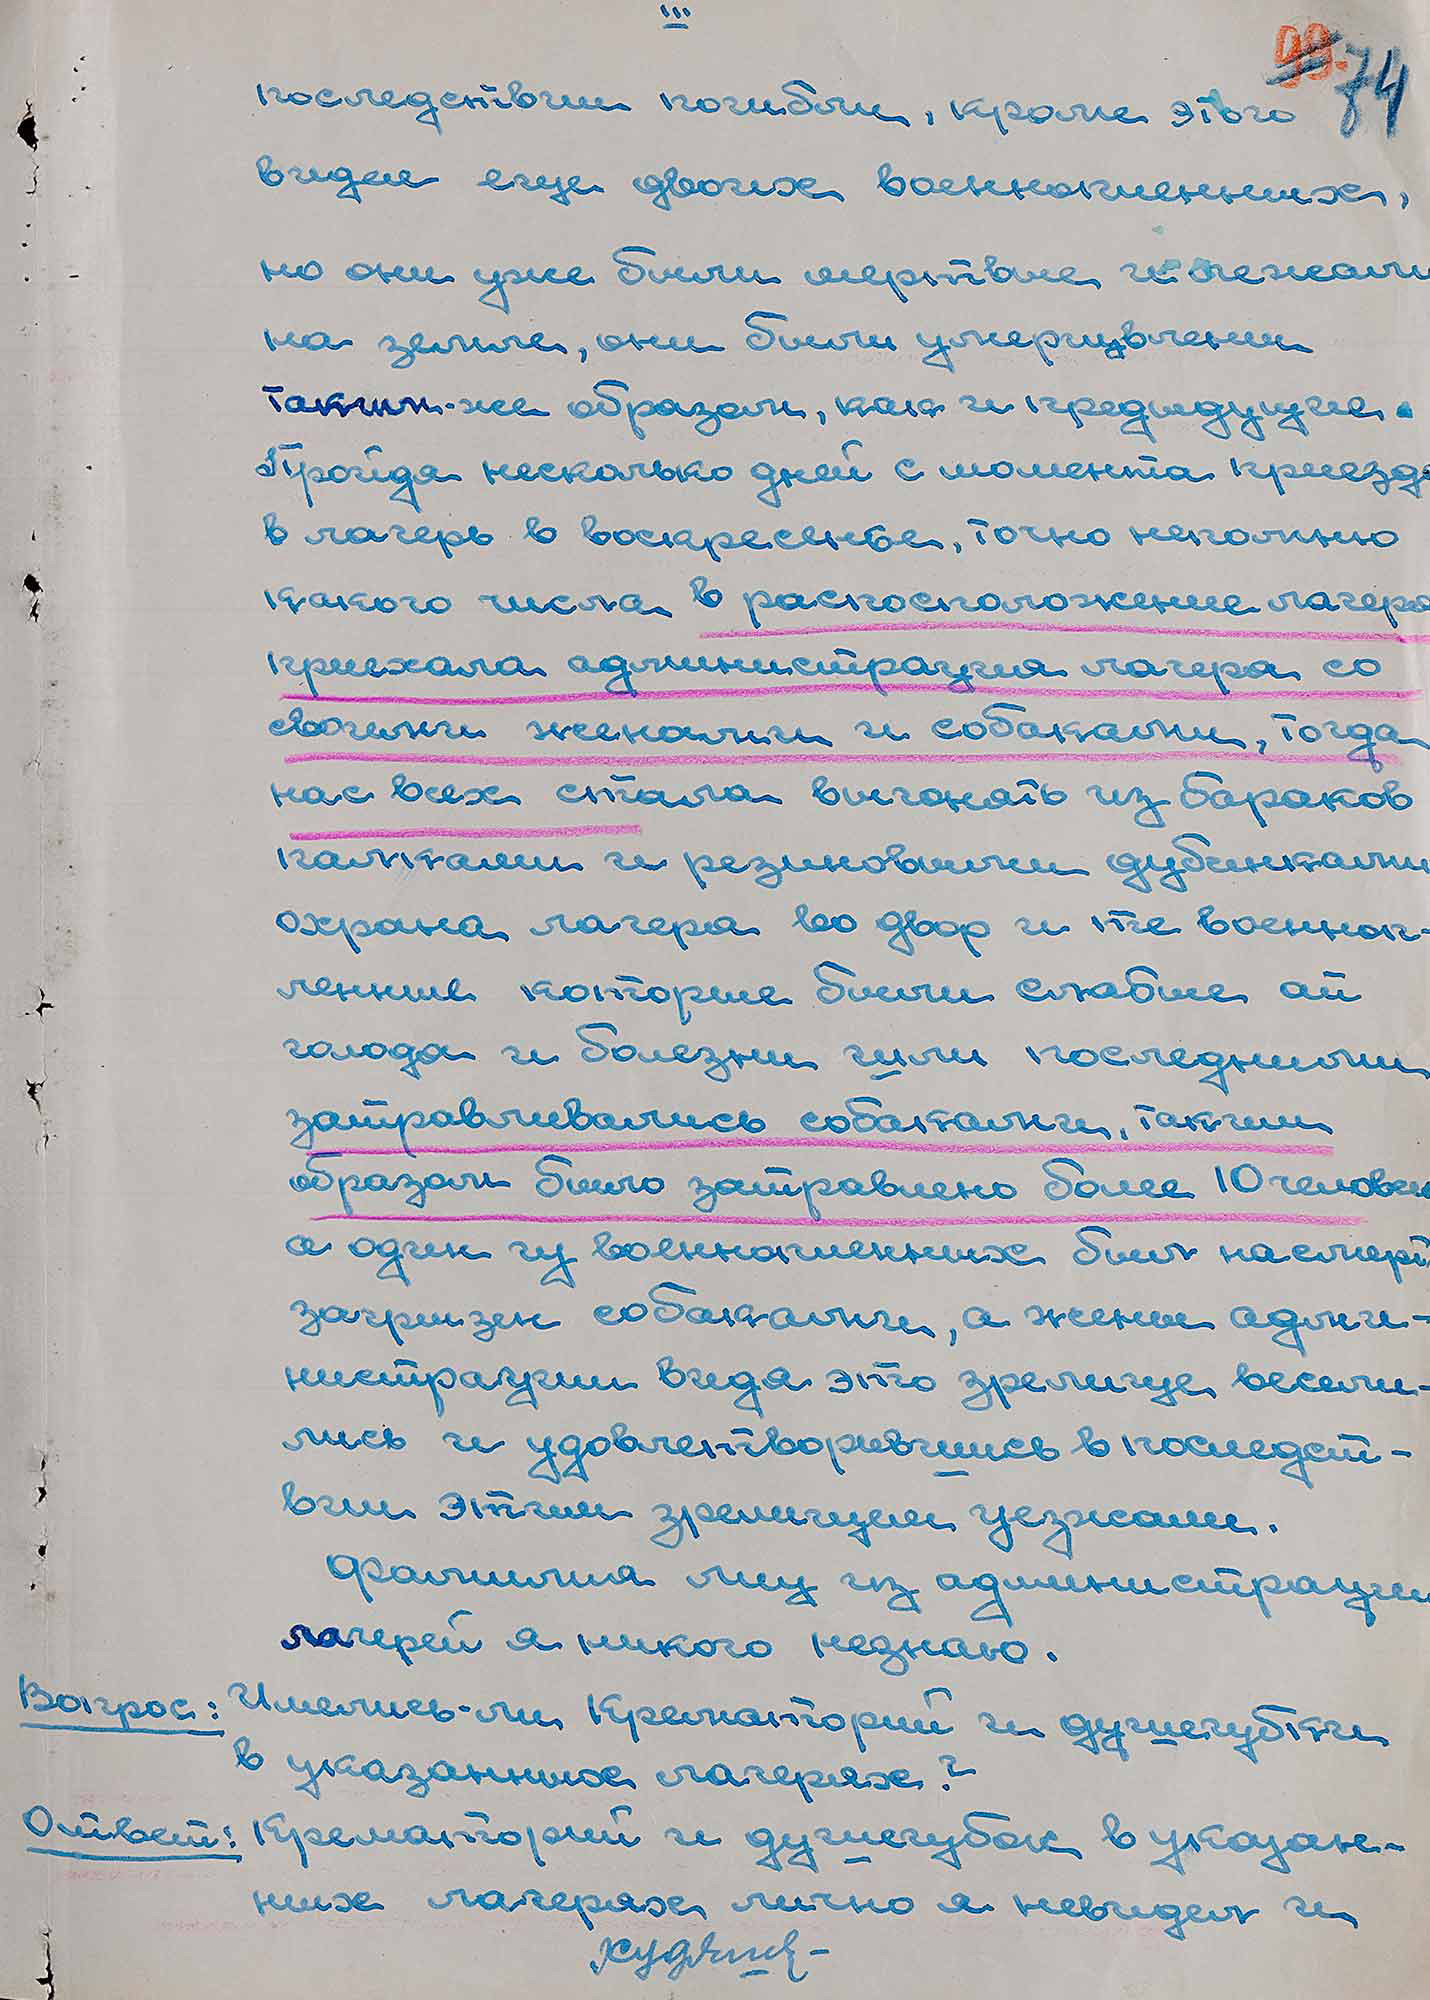 III
99. 74
последствии погибли, кроме этого
видел еще двоих военнопленных,
но они уже были мертвые и лежали
на земле, они были умерщвлены
таким-же образом, как и предыдущие.
Пройдя несколько дней с момента приезда
в лагерь в воскресенье, точно непомню
какого числа в распосположение лагеря
приехала администрация лагеря со
своими женами и собаками, тогда
нас всех стала выгонять из бараков
палками и резиновыми дубинками
охрана лагеря во двор и те военноп-
ленные которые были слабые от
голода и болезни или последними
затравливались собаками, таким
образом было затравлено более 10 человек
а один из военнопленных был насмерть
загрызен собаками, а жены адми-
нистрации видя это зрелище весели-
лись и удовлетворившись в последст-
вии этим зрелищем уезжали.
Фамилия лиц из администрации
лагерей я никого незнаю.
Вопрос: Имелись-ли Крематорий и душегубки
в указанных лагерях?
Ответ: Крематорий и душегубок в указан-
ных лагерях лично я невидел и